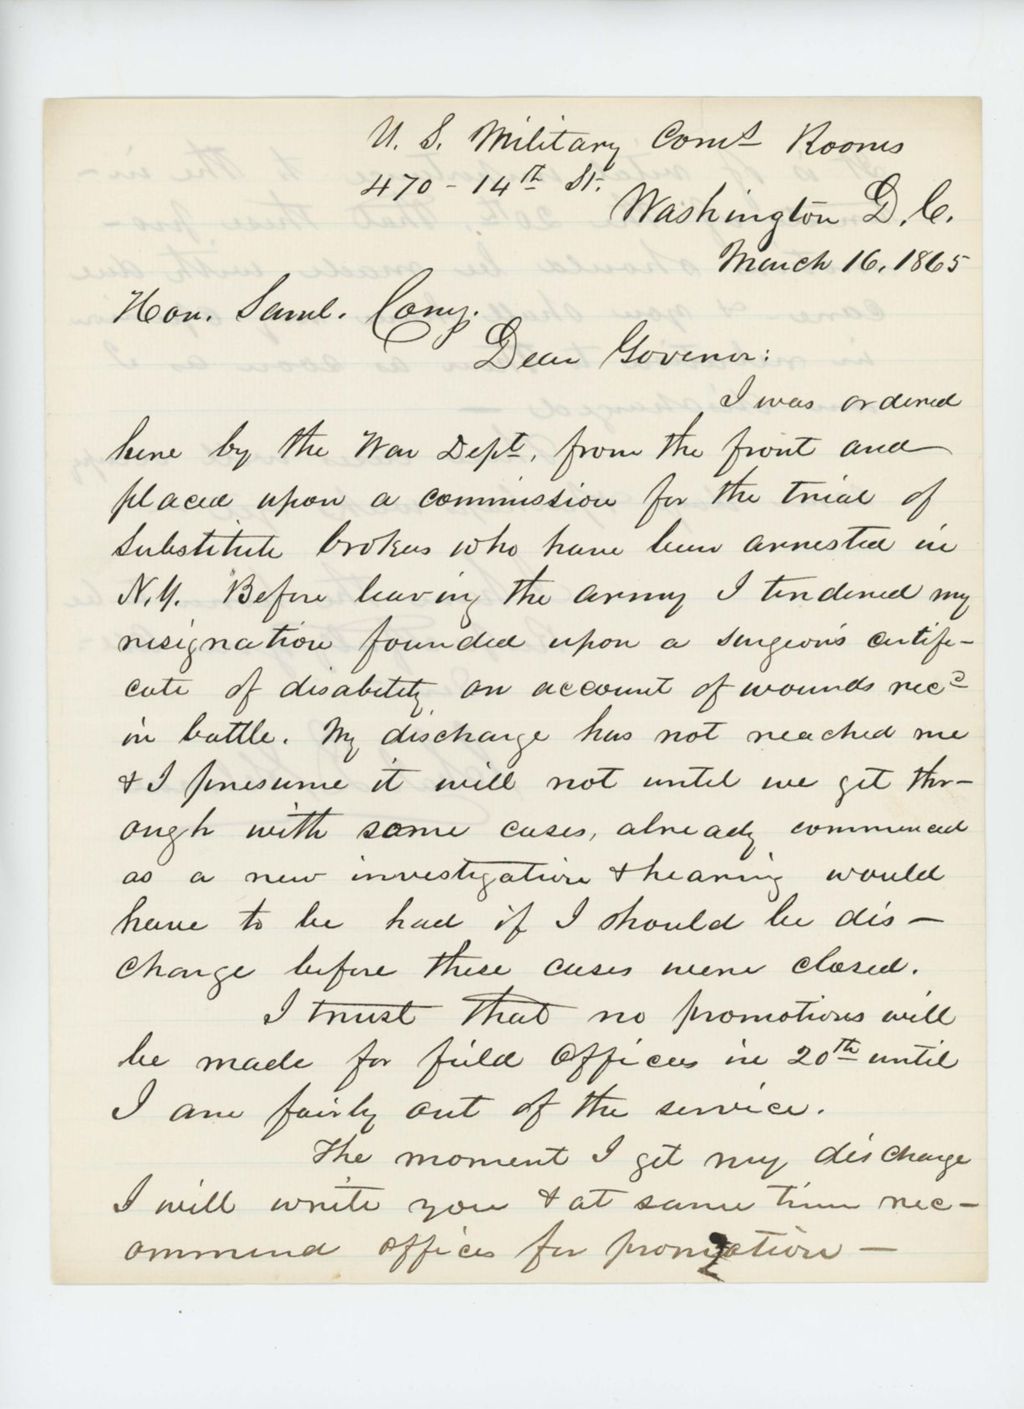 U. S. Military Coms Rooms
470 - 14th St.
Washington D. C.
March 16, 1865
Hon. Saml. Cony.
Dear Govenor:
I was ordered
here by the War Dept, from the front and
placed upon a commission for the trial of
Substitute brokers who have been arrested in
N.Y. Before leaving the army I tendered my
resignation founded upon a surgeon's certifi-
cate of disability on account of wounds recd
in battle. My discharge has not reached me
& I presume it will not until we get thr-
ough with some cases, already commenced
as a new investigation & hearing would
have to be had if I should be dis-
charge before these cases were closed.
I trust that no promotions will
be made for field Officers in 20th until
I am fairly out of the service.
The moment I get my discharge
I will write you & at same time rec-
ommend officers for promotion -